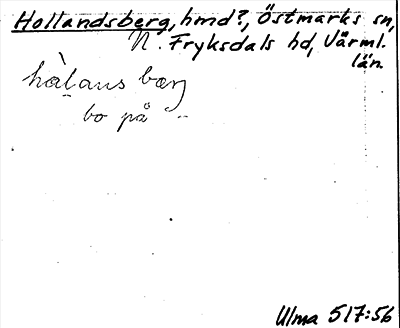 Hollandsberg, hmd?, Östmarks sn,
N. Fryksdals hd, Värml.
län.
hàlans bærj
bo på -"-
Ulma 517:56